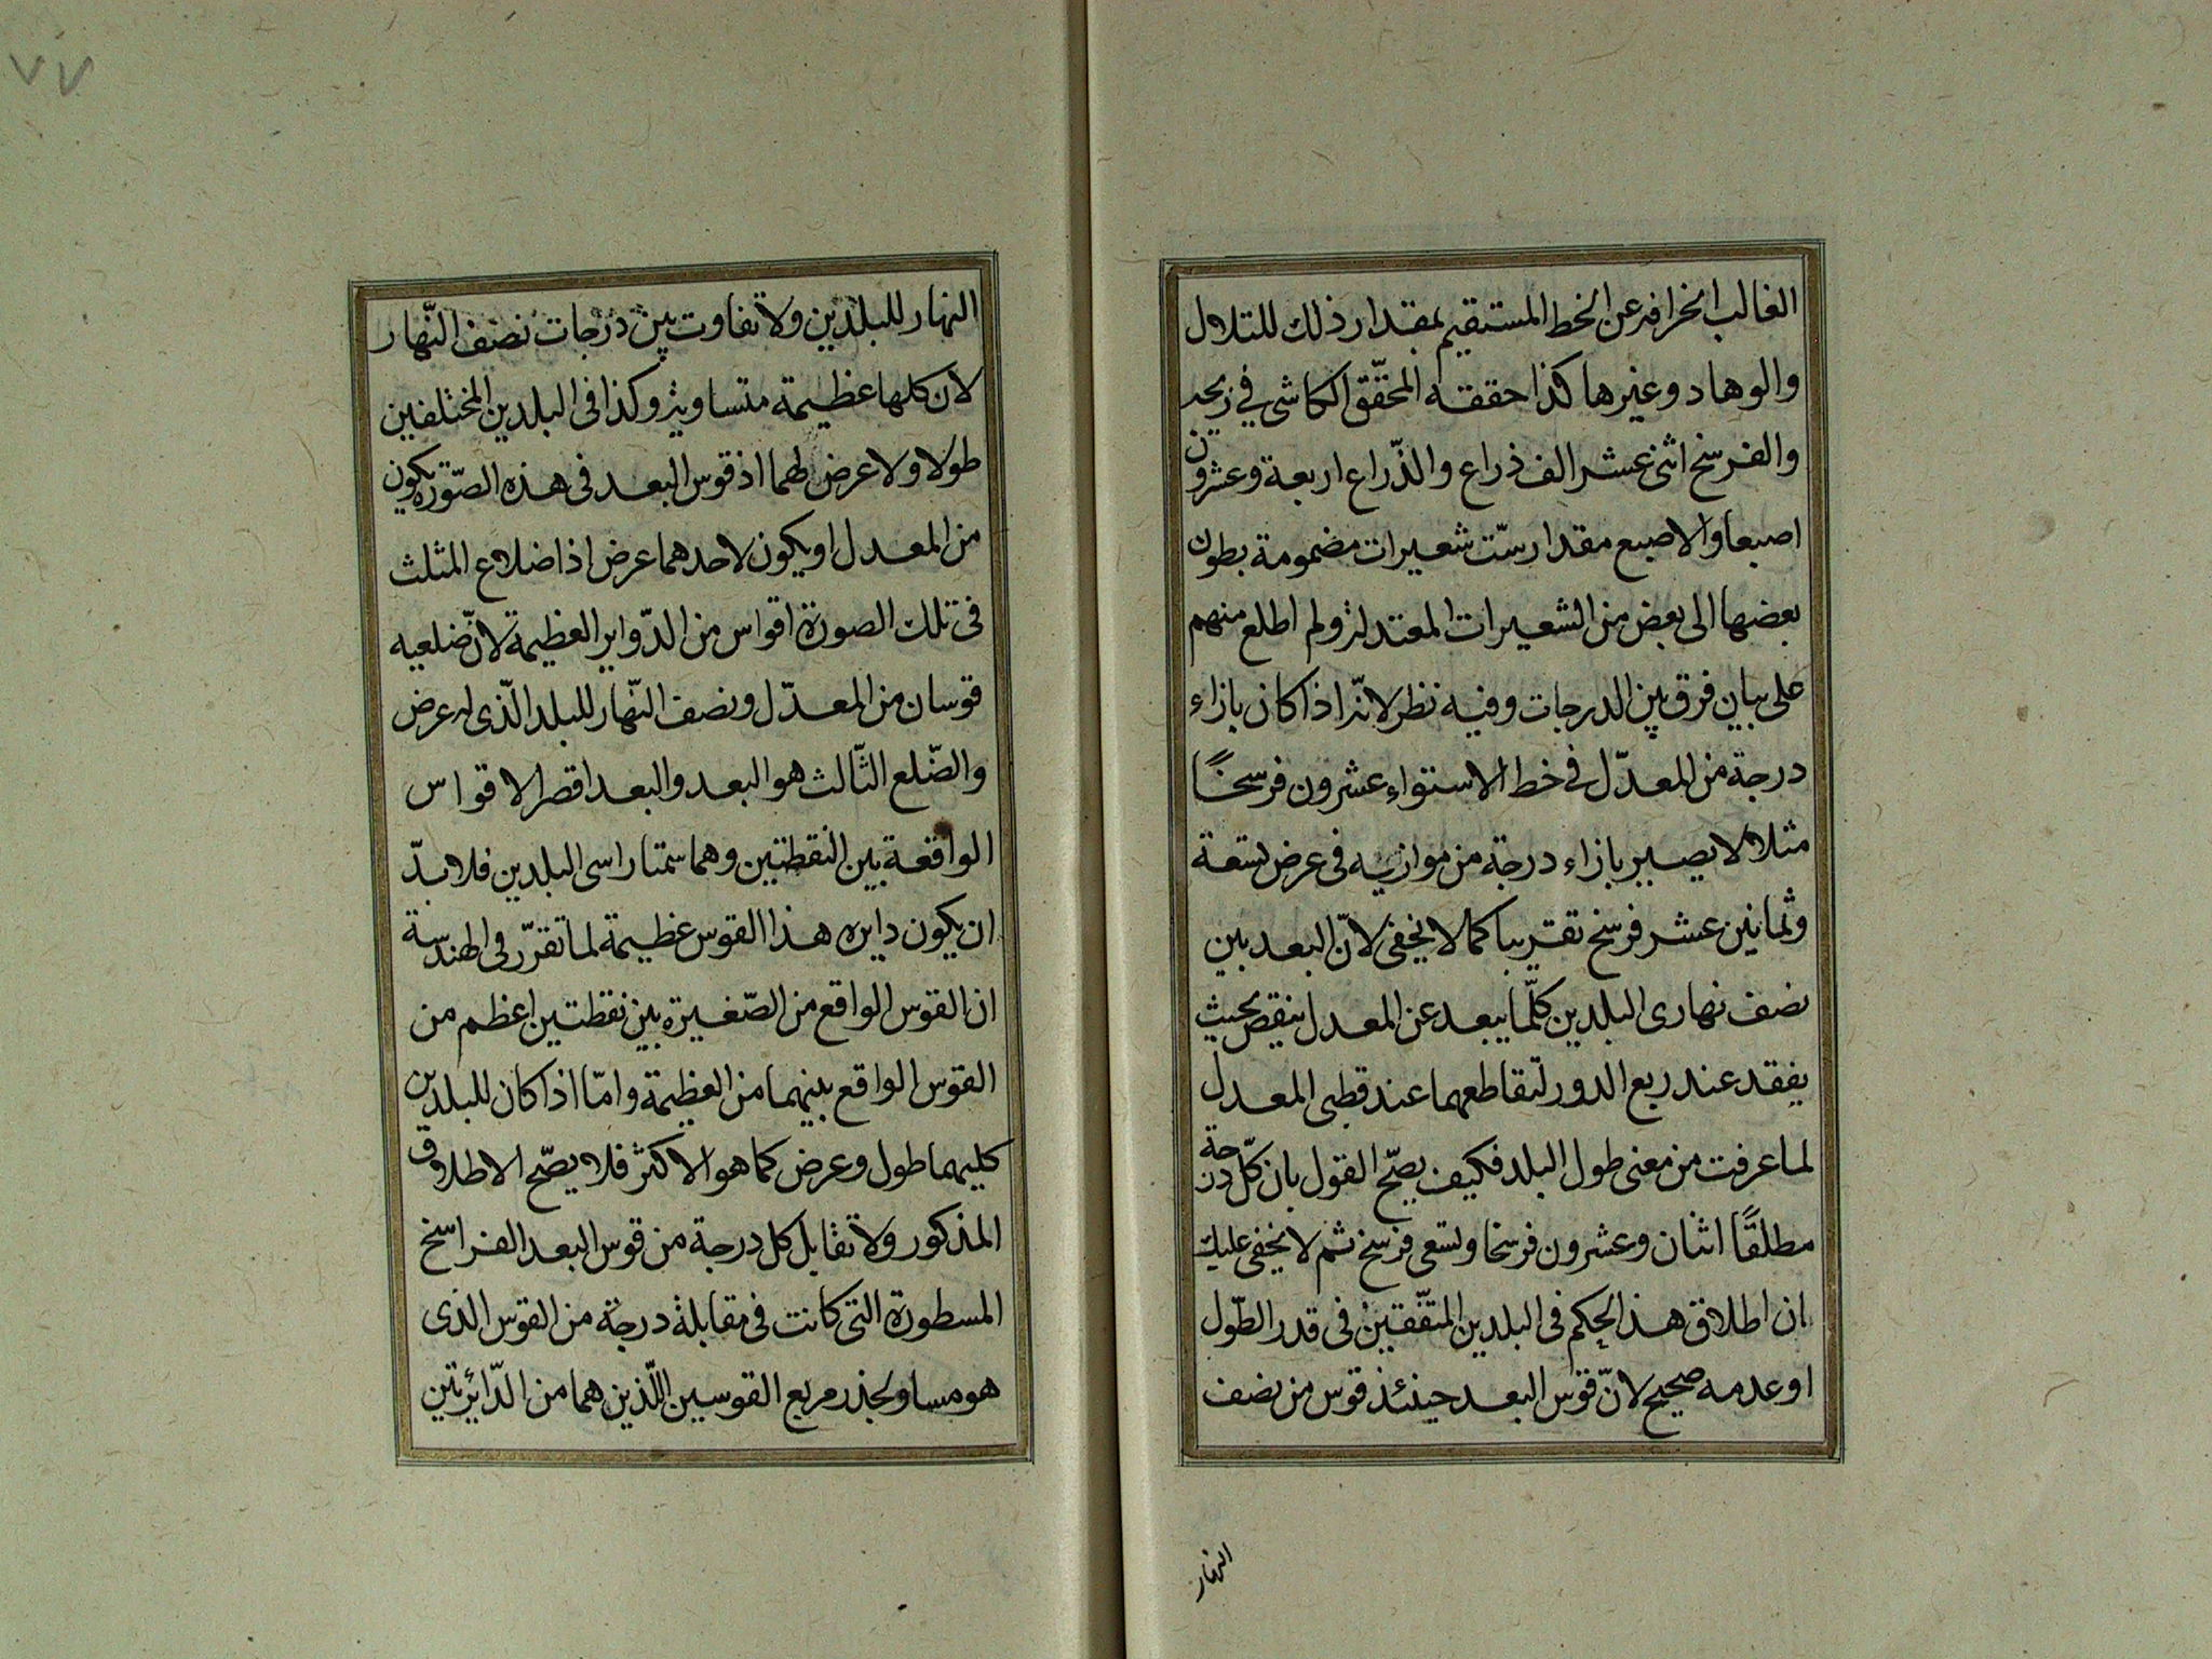 الغالب انحرافه عن الخط المستقيم بمقدار ذلك للتلال
والوهاد وغيرها كذا حققه المحقّق الكاشى في زيجه
والفرسخ اثنى عشر الف ذراع والذّراع اربعة وعشرون
اصبعا والاصبع مقدار ستّ شعيرات مضمومة بطون
بعضها الى بعض من الشعيرات المعتدلة ولم اطلع منهم
على بيان فرق بين الدرجات وفيه نظر لانّه اذا كان بازاء
درجة من المعدّل في خط الاستواء عشرون فرسخًا
مثلا لا يصير بازاء درجة من موازيه فى عرض تسعة
وثمانين عشر فرسخ تقريبا كما لا يخفى لانّ البعد بين
نصف نهارى البلدين كلّما يبعد عن المعدل ينقص بحيث
يفقد عند ربع الدور لتقاطعهما عند قطبى المعدل
لما عرفت من معنى طول البلد فكيف يصحّ القول بان كلّ درجة
مطلقًا اثنان وعشرون فرسخا وتسعى فرسخ ثم لا يخفى عليك
ان اطلاق هذا الحكم فى البلدين المتفّقين فى قدر الطّول
او عدمه صحيح لانّ قوس البعد حينئذ قوس من نصف
النهار
٧٧
النهار للبلدين ولا تفاوت بين درجات نصف النّهار
لان كلها عظيمة متساوية وكذا فى البلدين المختلفين
طولا ولا عرض لهما اذ قوس البعد فى هذه الصّورة يكون
من المعدل او يكون لاحدهما عرض اذ اضلاع المثلث
فى تلك الصورة اقواس من الدّواير العظيمة لانّ ضلعيه
قوسان من المعدّل ونصف النّهار للبلد الّذى له عرض
والضّلع الثّالث هو البعد والبعد اقصر الاقواس
الواقعة بين النقطتين وهما سمتا راسى البلدين فلا بدّ
ان يكون دايره هذا القوس عظيمة لما تقرّر فى الهندسة
ان القوس الواقع من الصّغيرة بين نقطتين اعظم من
القوس الواقع بينهما من العظيمة وامّا اذا كان للبلدين
كليهما طول وعرض كما هو الاكثر فلا يصّح الاطلاق
المذكور ولا تقابل كل درجة من قوس البعد الفراسخ
المسطورة التى كانت فى مقابلة درجة من القوس الذى
هو مساو لجذر مربع القوسين اللّذين هما من الدّائرتين